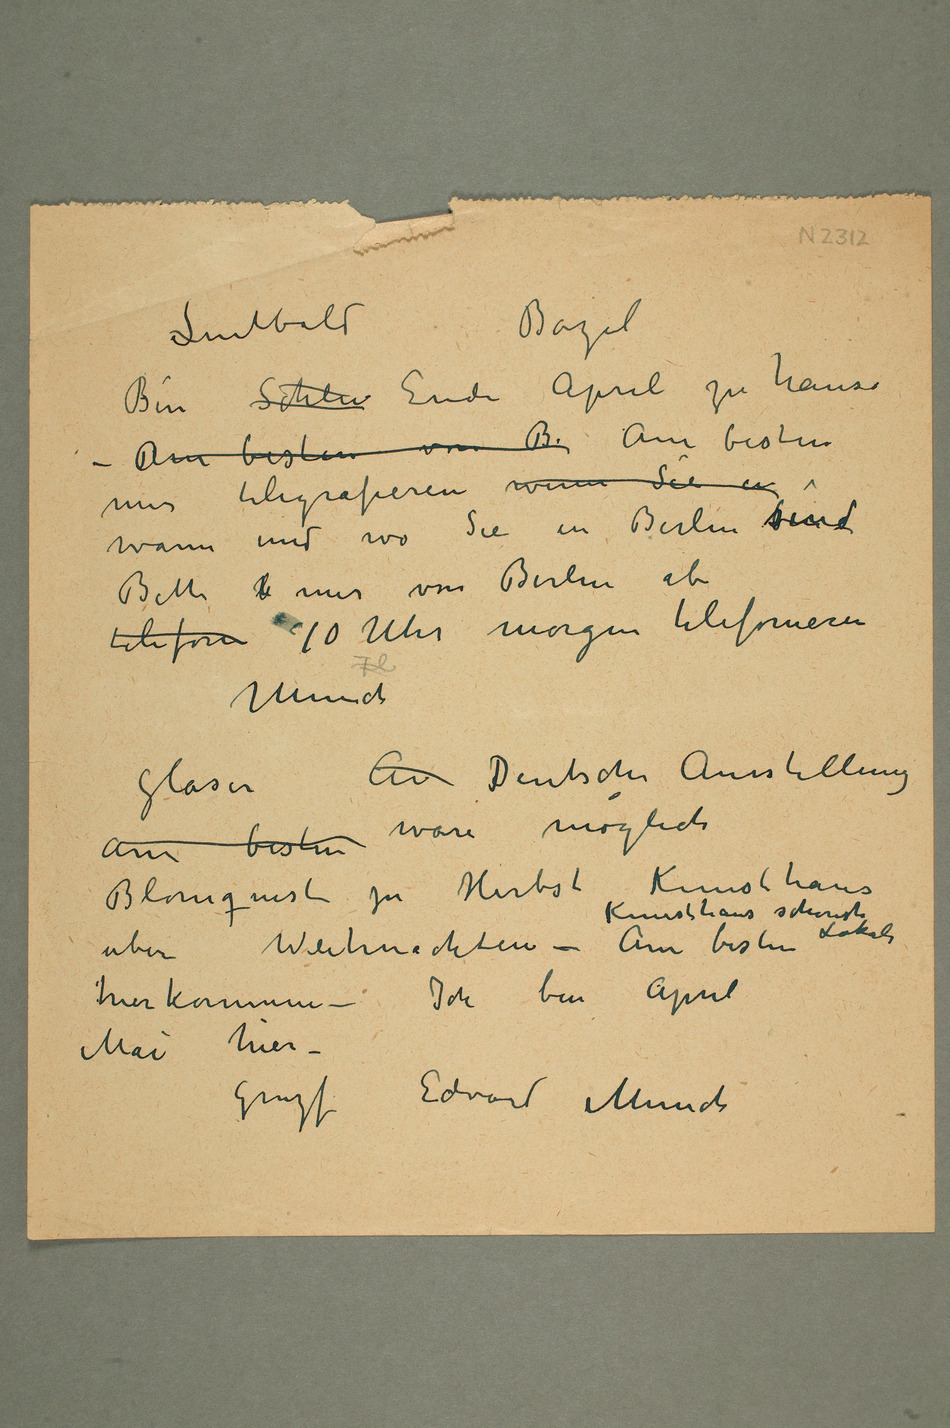 N 2312
Luitbald Bazel
Bin Schle Ende April zu hause
– Am besten von B. Am besten
mir telegrafieren wenn Sie in
wann und wo Sie in Berlin sind
Bitte mir von Berlin ab
telefon 10 Uhr morgen telefonieren
Munch
Glaser An Deutsche Ausstellung
am besten wäre möglich
Blomquist zu Herbst Kunsthaus
Kunsthaus schönste
uber Weihnachten – Am besten Lokale
hierkommen – Ich bin April
Mai hier –
Edvard Munch